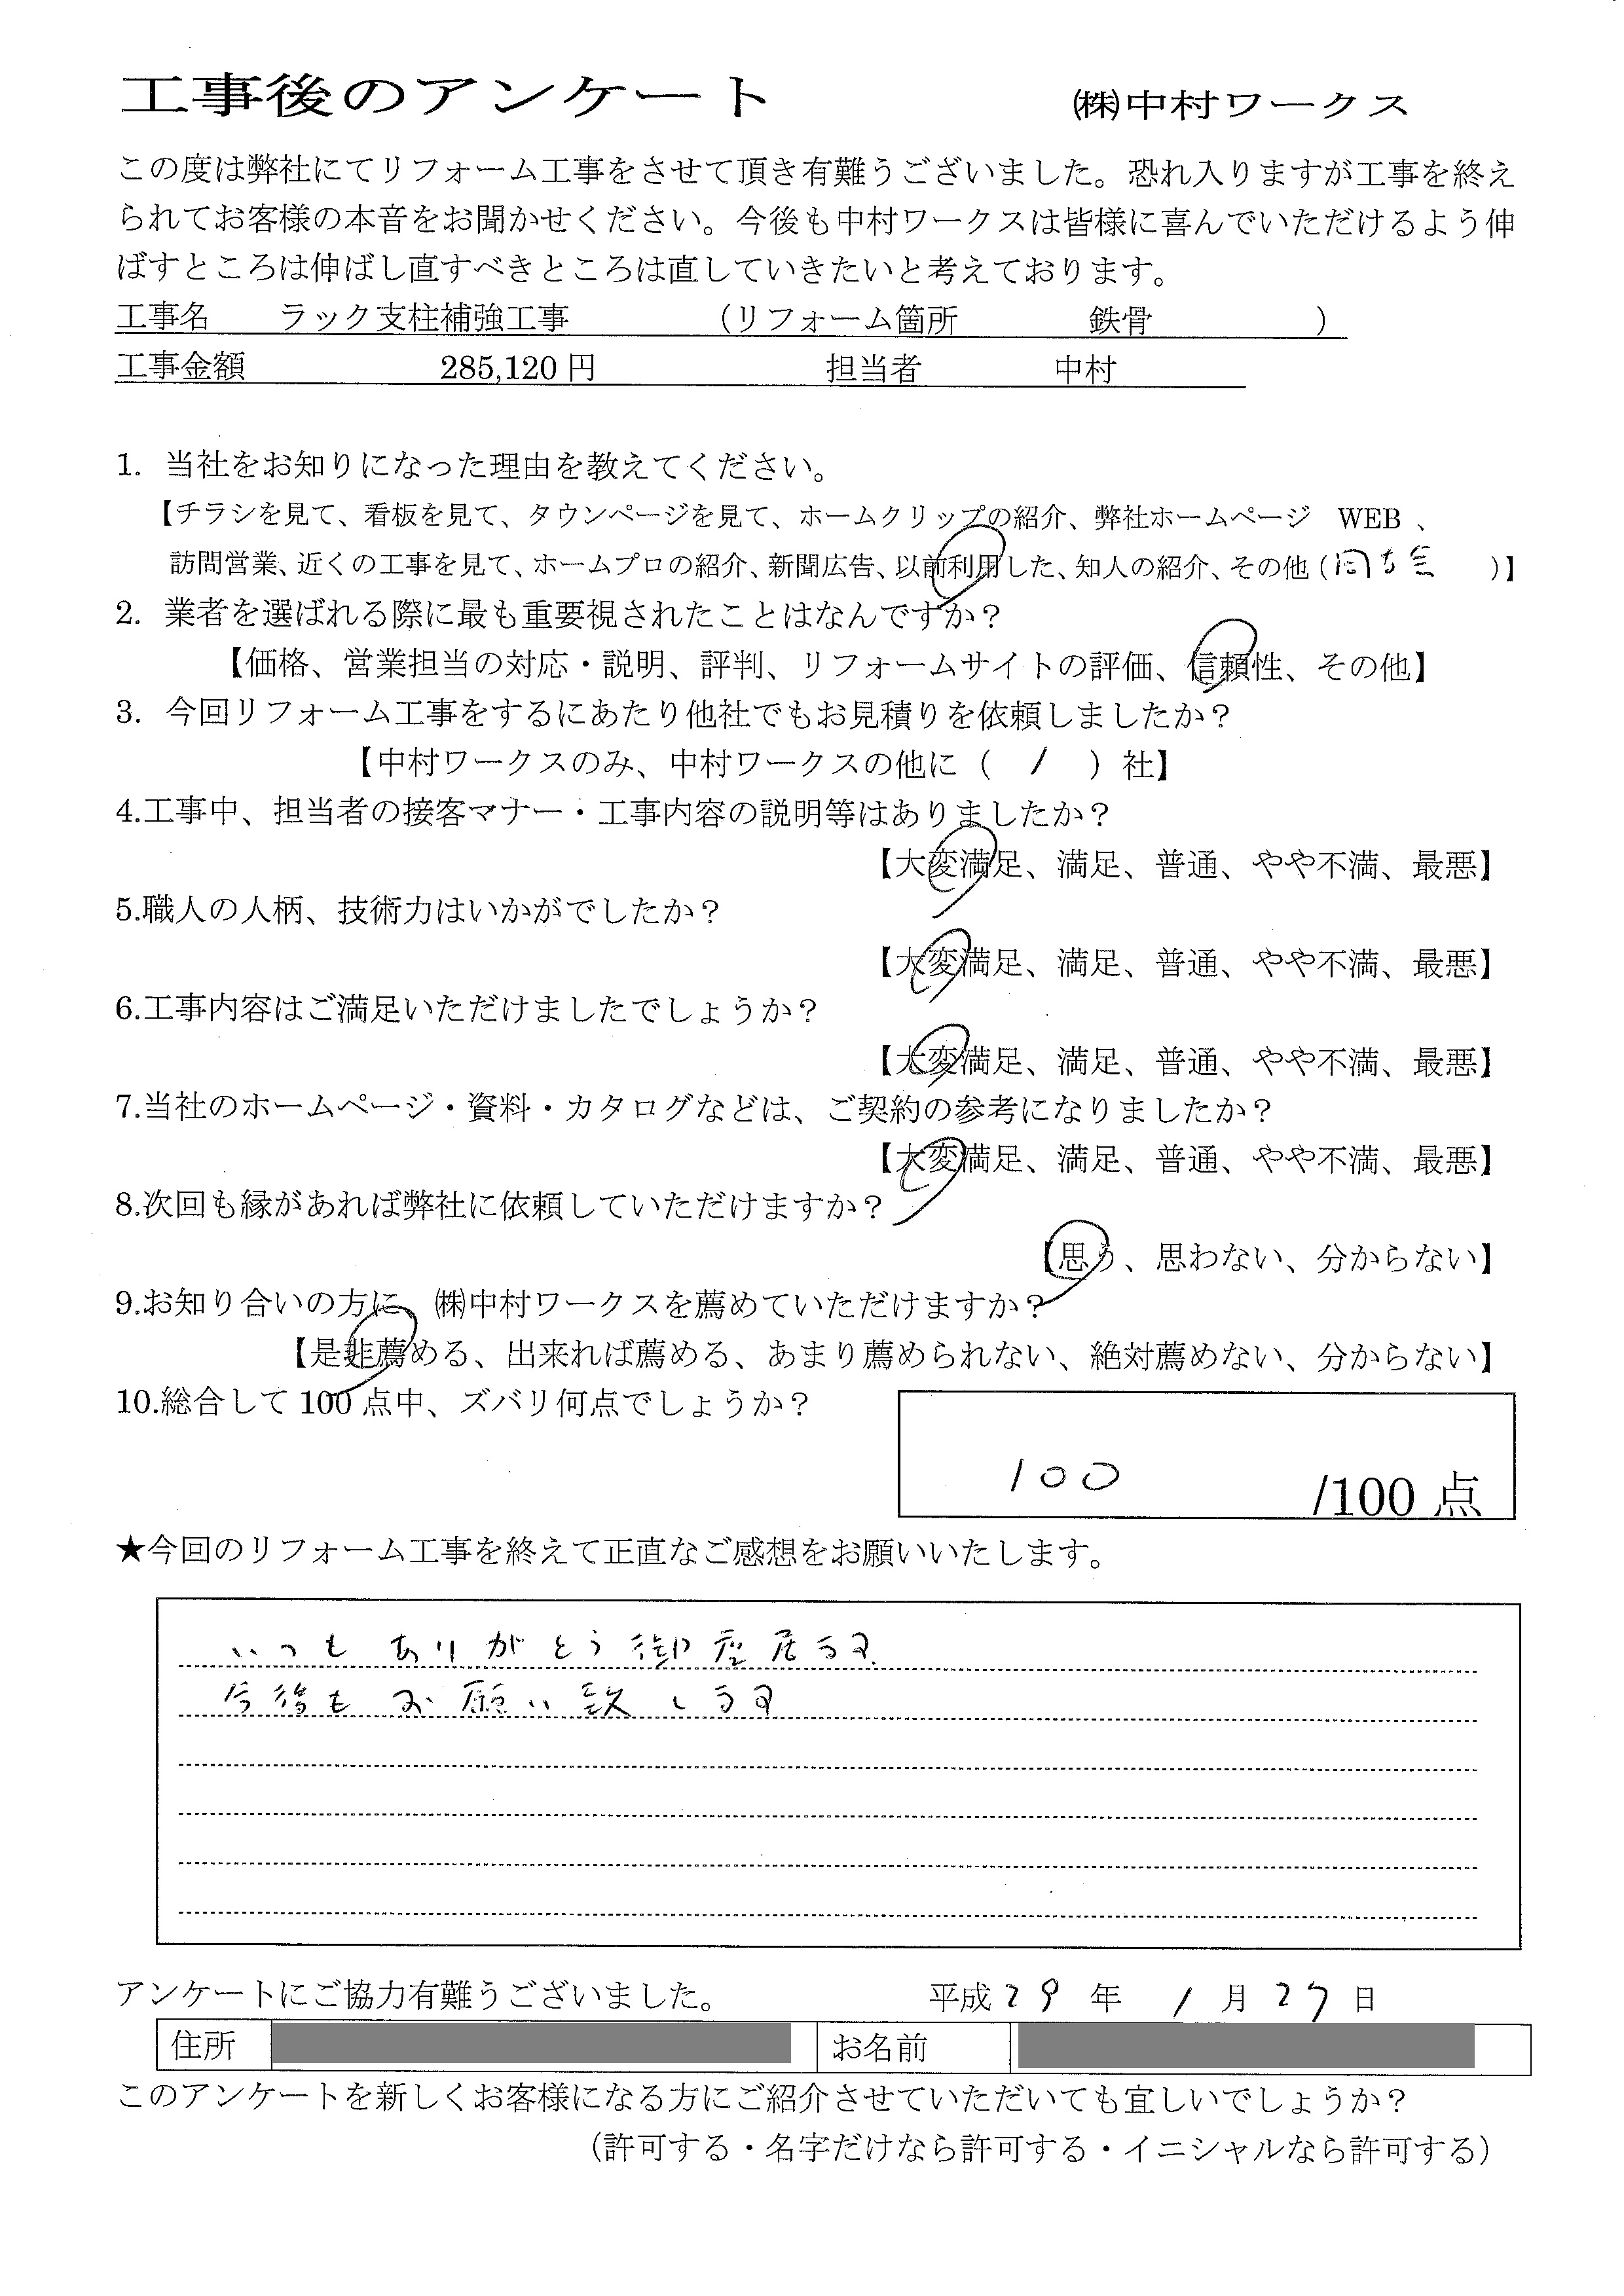 工事後のアンケート ㈱中村ワークス
この度は弊社にてリフォーム工事をさせて頂き有難うございました。恐れ入りますが工事を終え
られてお客様の本音をお聞かせください。今後も中村ワークスは皆様に喜んでいただけるよう伸
ばすところは伸ばし直すべきところは直していきたいと考えております。
工事名 ラック支柱補強工事 （リフォーム箇所 鉄骨 ）
工事金額 285,120 円 担当者 中村
1. 当社をお知りになった理由を教えてください。
【チラシを見て、看板を見て、タウンページを見て、ホームクリップの紹介、弊社ホームページ WEB 、
訪問営業、近くの工事を見て、ホームプロの紹介、新聞広告、以前利用した、知人の紹介、その他（ ）】
2. 業者を選ばれる際に最も重要視されたことはなんですか？
【価格、営業担当の対応・説明、評判、リフォームサイトの評価、信頼性、その他】
3. 今回リフォーム工事をするにあたり他社でもお見積りを依頼しましたか？
【中村ワークスのみ、中村ワークスの他に（ / ）社】
4.工事中、担当者の接客マナー・工事内容の説明等はありましたか？
【大変満足、満足、普通、やや不満、最悪】
5.職人の人柄、技術力はいかがでしたか？
【大変満足、満足、普通、やや不満、最悪】
6.工事内容はご満足いただけましたでしょうか？
【大変満足、満足、普通、やや不満、最悪】
7.当社のホームページ・資料・カタログなどは、ご契約の参考になりましたか？
【大変満足、満足、普通、やや不満、最悪】
8.次回も縁があれば弊社に依頼していただけますか？
【思う、思わない、分からない】
9.お知り合いの方に、㈱中村ワークスを薦めていただけますか？
【是非薦める、出来れば薦める、あまり薦められない、絶対薦めない、分からない】
10.総合して 100 点中、ズバリ何点でしょうか？
100 /100 点
★今回のリフォーム工事を終えて正直なご感想をお願いいたします。
いつも ありがとう御座居ます
今後も お願い致します
アンケートにご協力有難うございました。 平成 29 年 1 月 27 日
住所 お名前
このアンケートを新しくお客様になる方にご紹介させていただいても宜しいでしょうか？
（許可する・名字だけなら許可する・イニシャルなら許可する）